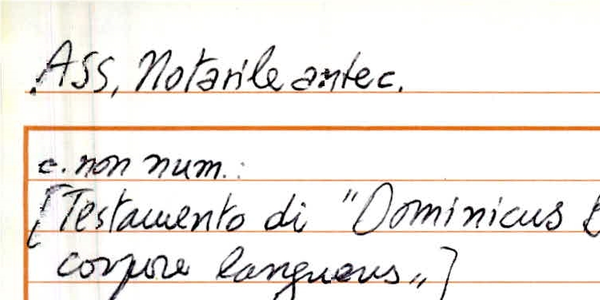 ASS, Notarile antec.
c. non num.:
[Testamento di "Dominicus
corpore languens„]